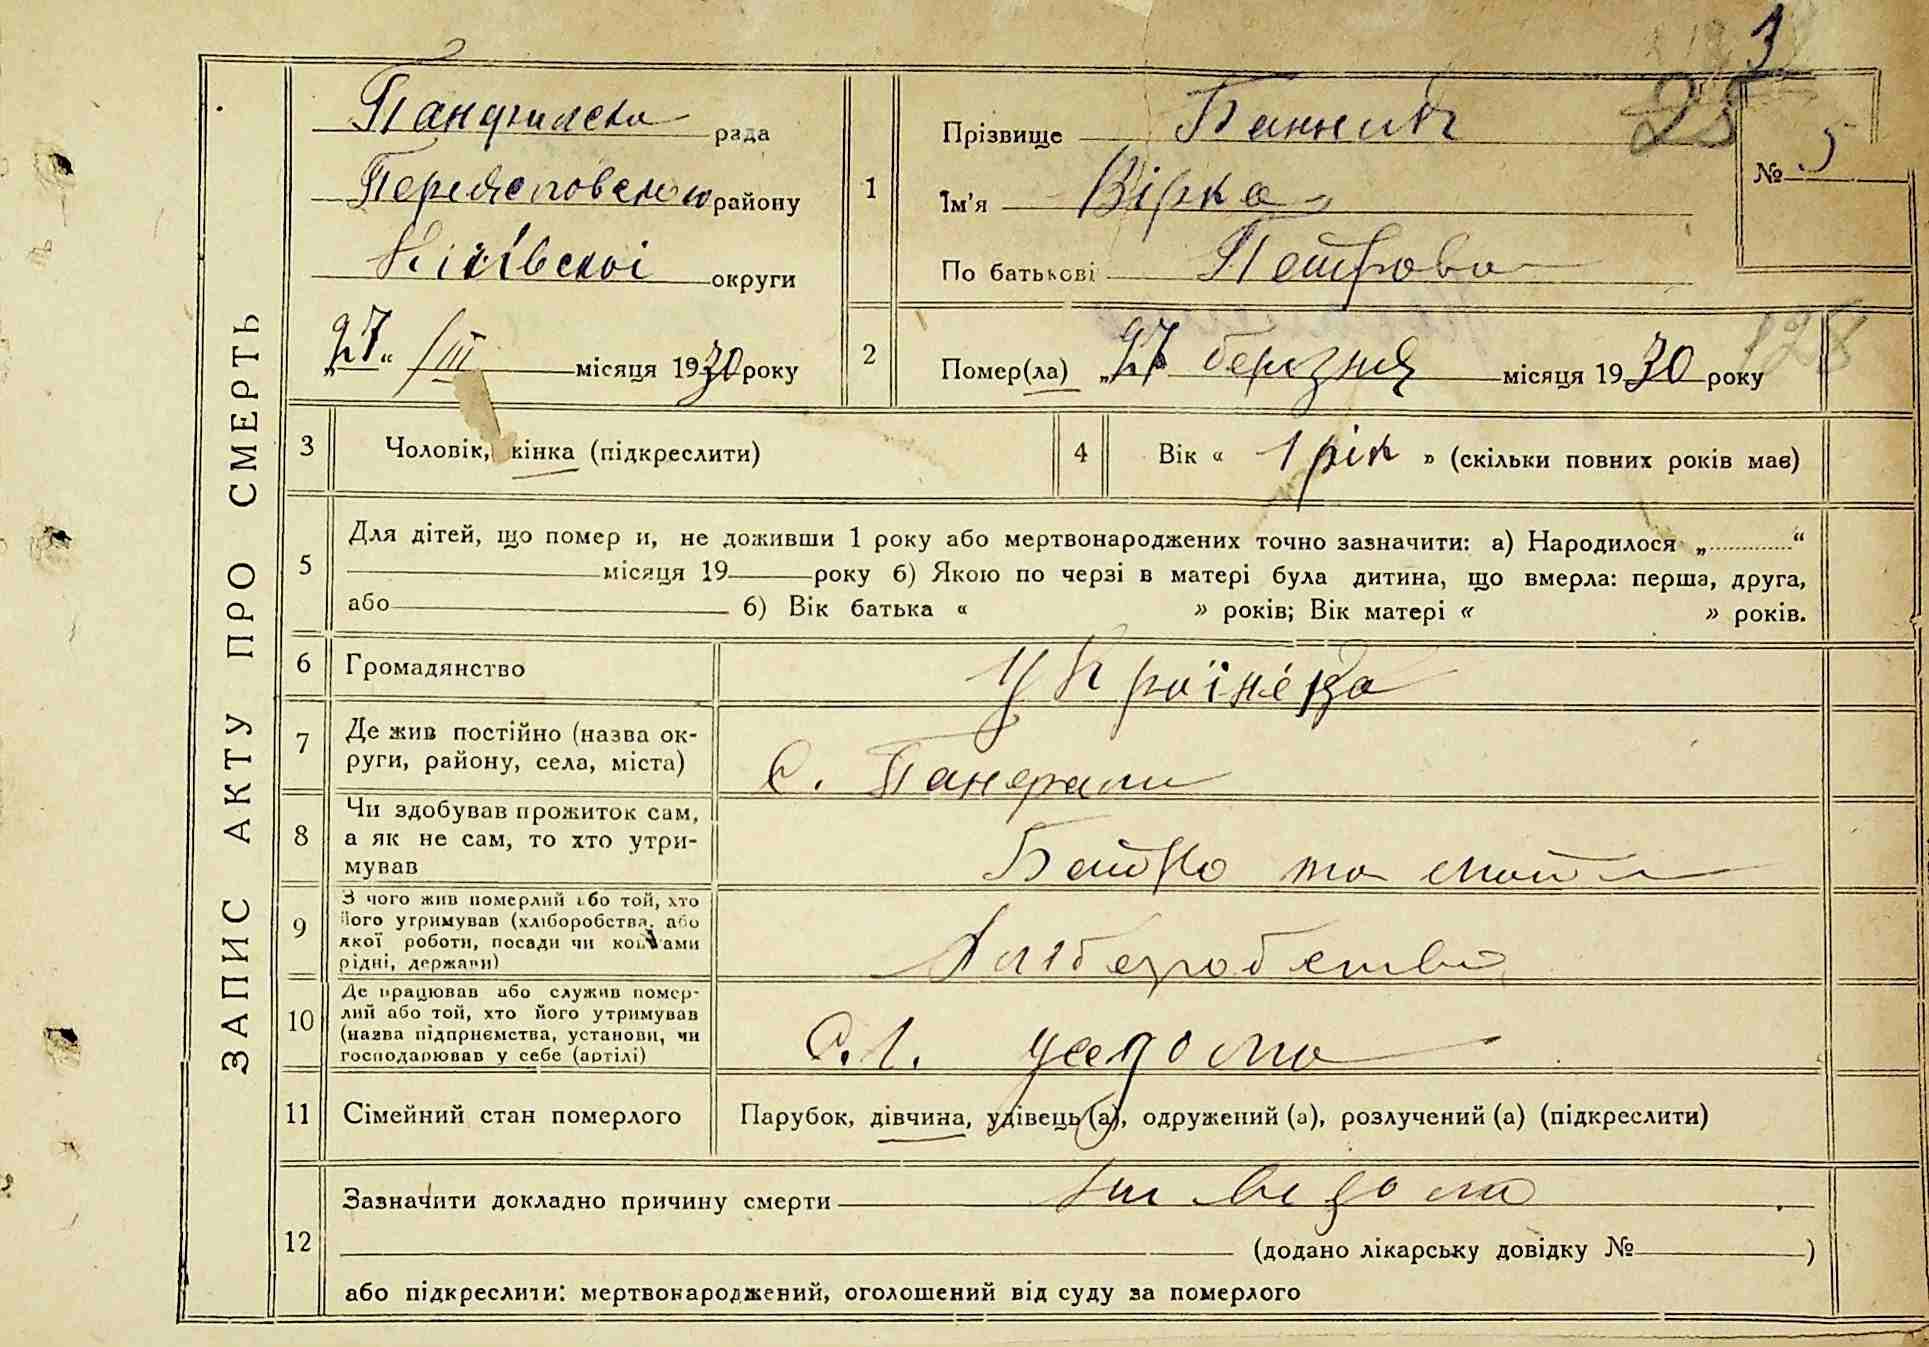 3
28
ЗАПИС АКТУ ПРО СМЕРТЬ
Панфилська рада
Переяславського району
Київської округи
"27" /III місяця 1930 року
1
Прізвище Банник
Ім'я Вірка
По батькові Петрова
№ 5
128
2
Помер(ла) "27" березня місяця 1930 року
3
Чоловік, жінка (підкреслити)
4
Вік « 1 рік » (скільки повних років має)
5
Для дітей, що помер и, не доживши 1 року або мертвонароджених точно зазначити: а) Народилося „ “
місяця 19 року б) Якою по черзі в матері була дитина, що вмерла: перша, друга,
або б) Вік батька « » років; Вік матері « » років.
6
Громадянство
Українка
7
Де жив постійно (назва ок-
руги, району, села, міста)
с. Панфили
8
Чи здобував прожиток сам,
а як не сам, то хто утри-
мував
Батько та мати
9
З чого жив померлий або той, хто
його утримував (хліборобства, або
якої роботи, посади чи коштами
рідні, держави)
Хліборобство
10
Де працював або служив помер-
лий або той, хто його утримував
(назва підприємства, установи, чи
господарював у себе (артілі)
удома
11
Сімейний стан померлого
Парубок, дівчина, удівець (а), одружений (а), розлучений (а) (підкреслити)
12
Зазначити докладно причину смерти
(додано лікарську довідку № )
або підкреслити: мертвонароджений, оголошений від суду за померлого